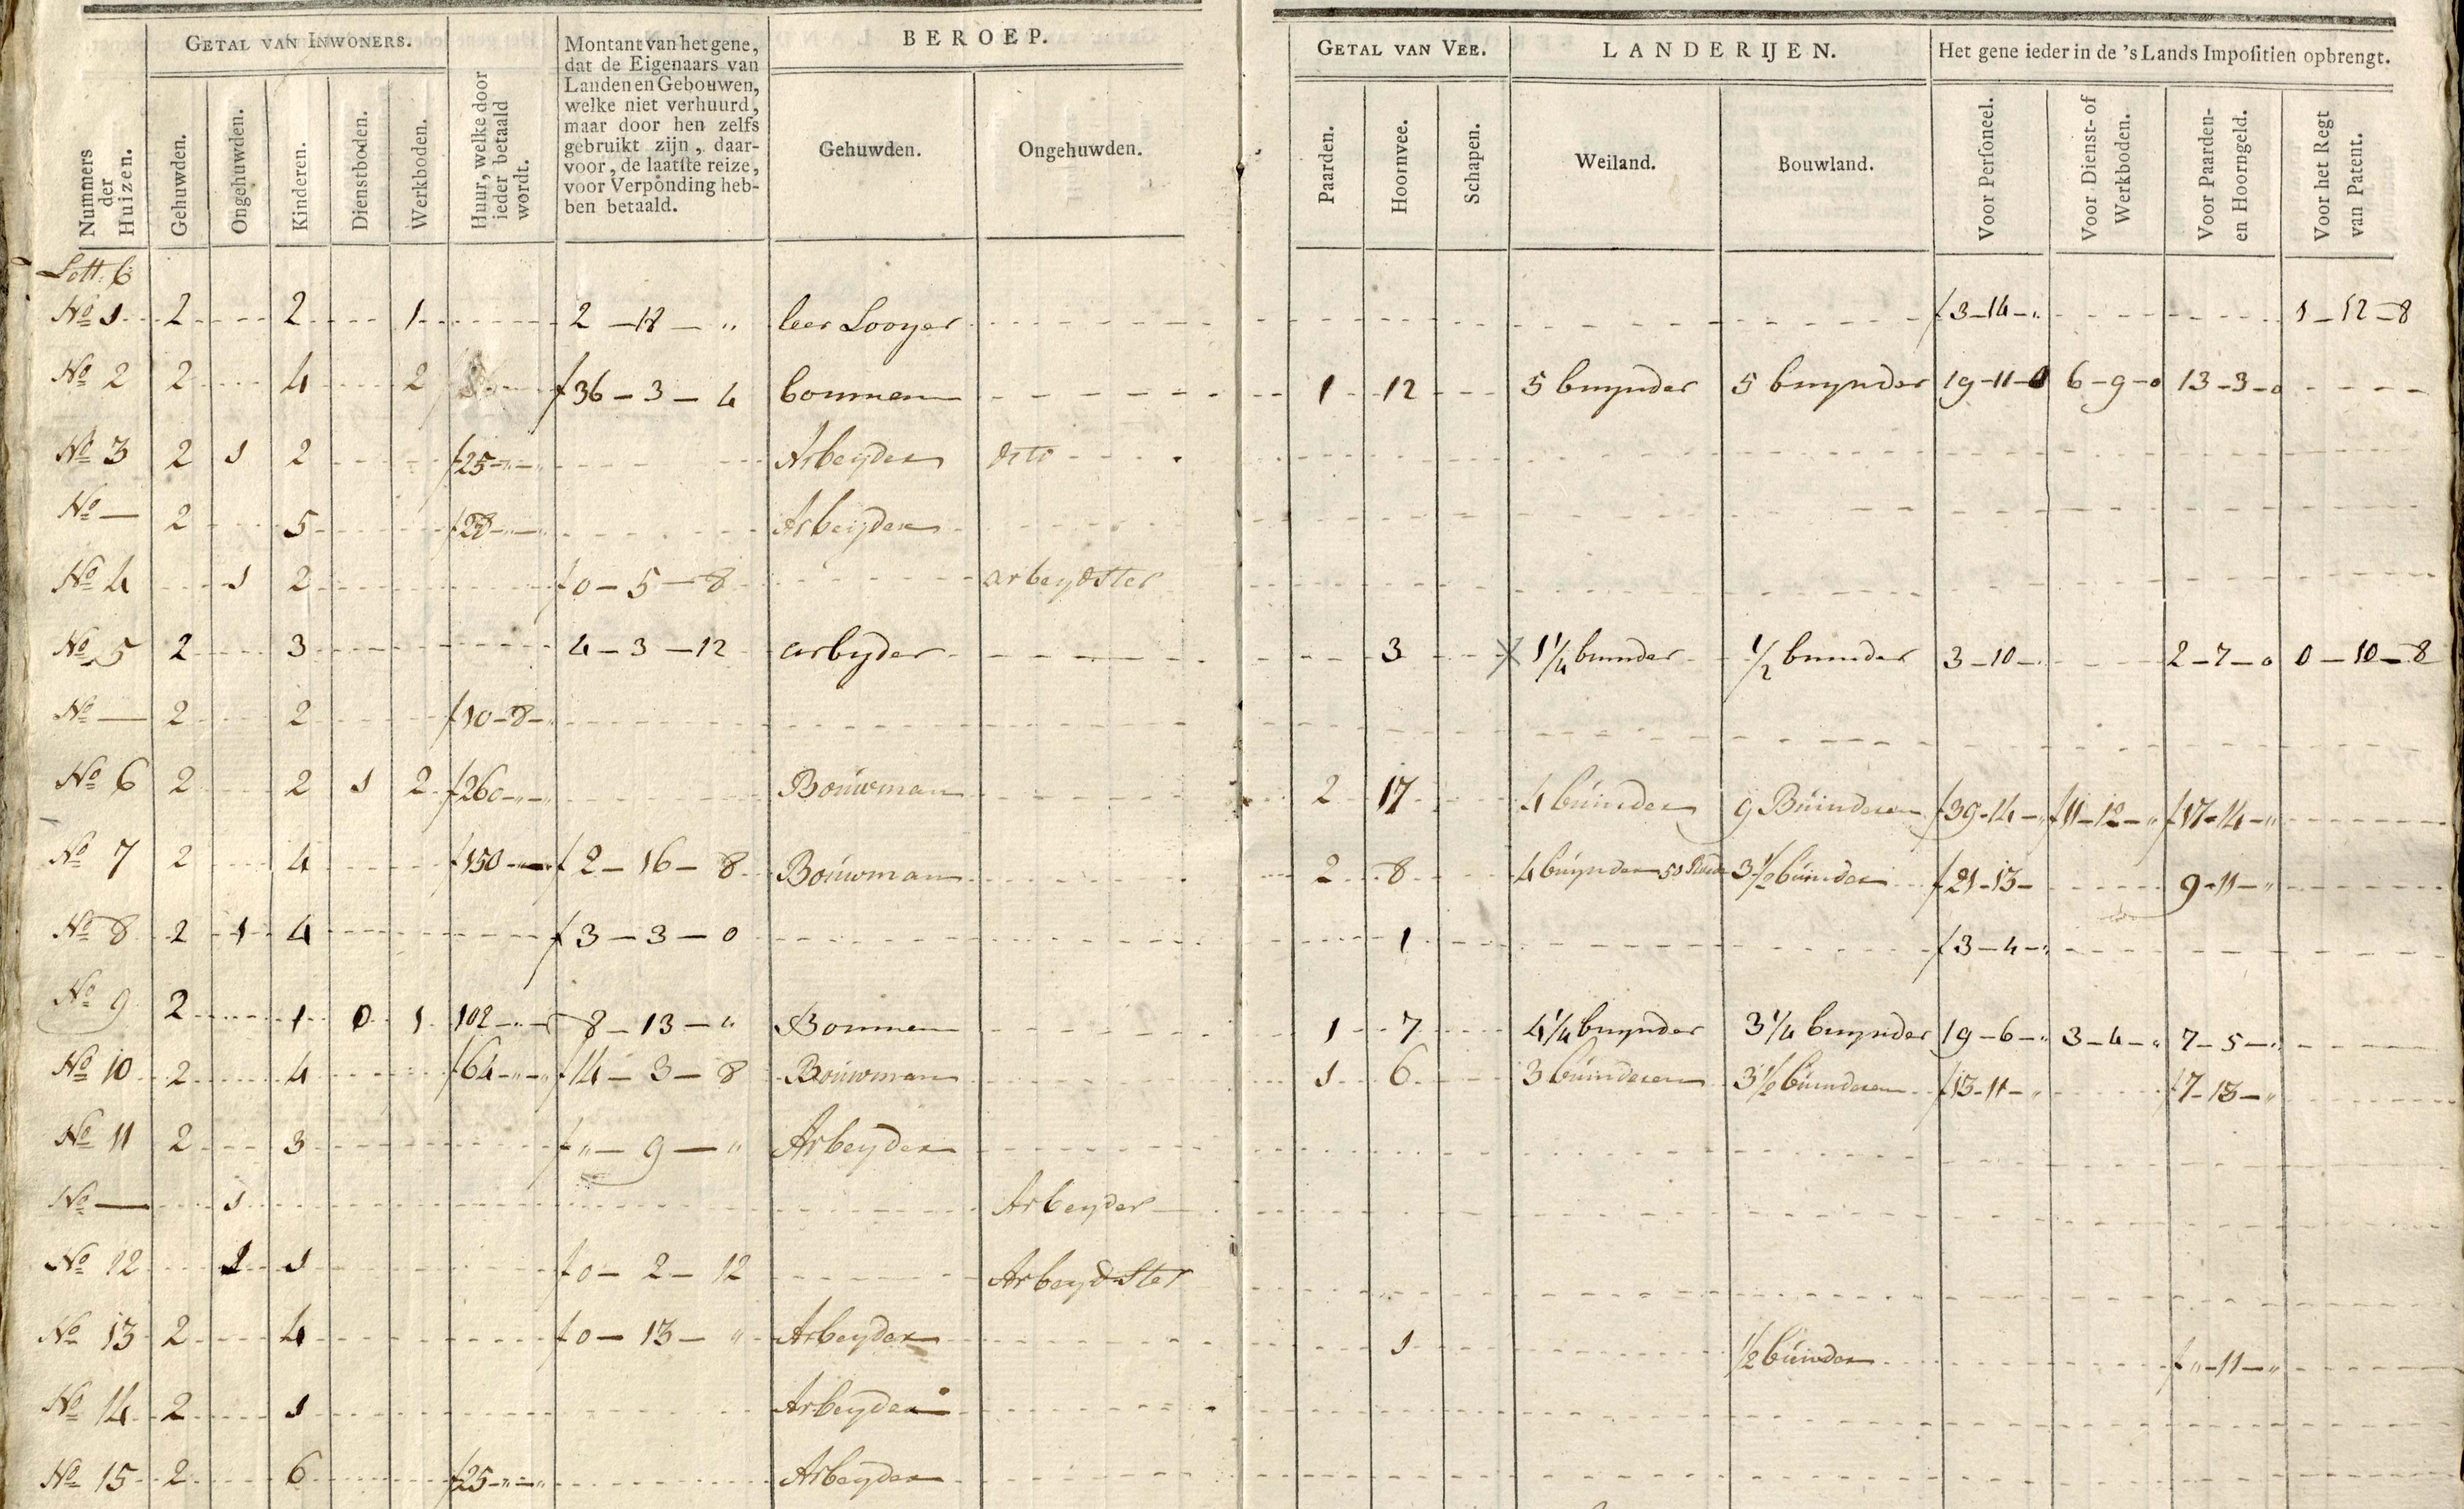 GETAL VAN INWONERS.
Nummers der Huizen.
Gehuwden.
Ongehuwden.
Kinderen.
Dienstboden.
Werkboden.
Huur, welke door ieder betaald wordt.
Montant van het gene,
dat de Eigenaars van
Landen en Gebouwen,
welke niet verhuurd,
maar door hen zelfs
gebruikt zijn, daar-
voor, de laatste reize,
voor Verponding heb-
ben betaald.
BEROEP.
Gehuwden. Ongehuwden.
GETAL VAN VEE.
Paarden.
Hoornvee.
Schapen.
LANDERIJEN.
Weiland. Bouwland.
Het gene ieder in de 's Lands Impositien opbrengt.
Voor Personeel.
Voor Dienst- of Werkboden.
Voor Paarden- en Hoorngeld.
Voor het Regt van Patent.
Lett. 6
No 1 2 2 1 2 - - " leer Looyer f 3-14-" 1-12-8
No 2 2 4 2 f 36-3-4 bouman 1 12 5 buynder 5 buynder 19-11-0 6-9-0 13-3-0
No 3 2 1 2 f 25-"-" Arbeyder dito
No — 2 5 Arbeijder
No 4 1 2 f 0-5-8 arbeydster
No 5 2 3 4-3-12 arbyder 3 1 1/4 bunder 1/2 bunder 3-10-" 2-7-0 0-10-8
No — 2 2 f 10-8-"
No 6 2 2 1 2 f 260-"-" Bouwman 2 17 4 buinder 9 Buinderen f 39-14-" f 11-12-" f 17-14-"
No 7 2 4 f 150-"-" f 2-16-8 Bouwman 2 8 4 buynder 50 3 1/2 buinder f 21-13- 9-11-"
No 8 2 1 4 f 3-3-0 1 f 3-4-"
No 9 2 1 0 1 102-"- 8-13-" Bouman 1 7 4 1/4 buynder 3 1/4 buynder 19-6-" 3-4-" 7-5-"
No 10 2 4 f 64-"-" f 14-3-8 Bouwman 1 6 3 buinderen 3 1/2 buinderen f 13-11-" f 7-13-"
No 11 2 3 f "-9-" Arbeyder
No — 1 Arbeyder
No 12 1 1 f 0-2-12 Arbeydster
No 13 2 4 f 0-13-" Arbeyder 1 1/2 buinder f "-11-"
No 14 2 1 Arbeyder
No 15 2 6 f 25-"-" Arbeyder